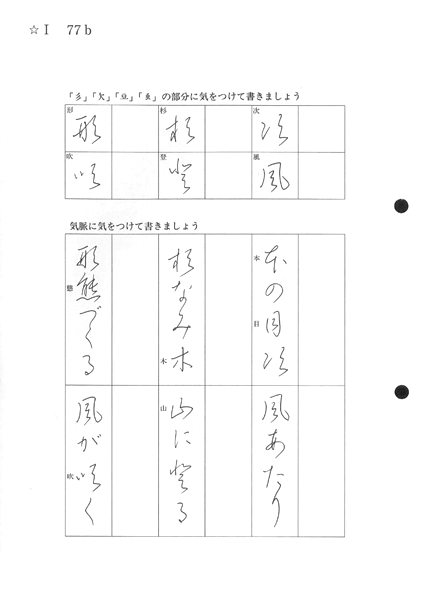 ☆Ⅰ 77b
「彡」「欠」「豆」「䖝」の部分に気をつけて書きましょう
形 杉 次
形 杉 次
吹 登 風
吹 登 風
気脈に気をつけて書きましょう
本の目次
本
目
杉なみ木
木
形態づくる
態
風あたり
山に登る
山
風が吹く
吹